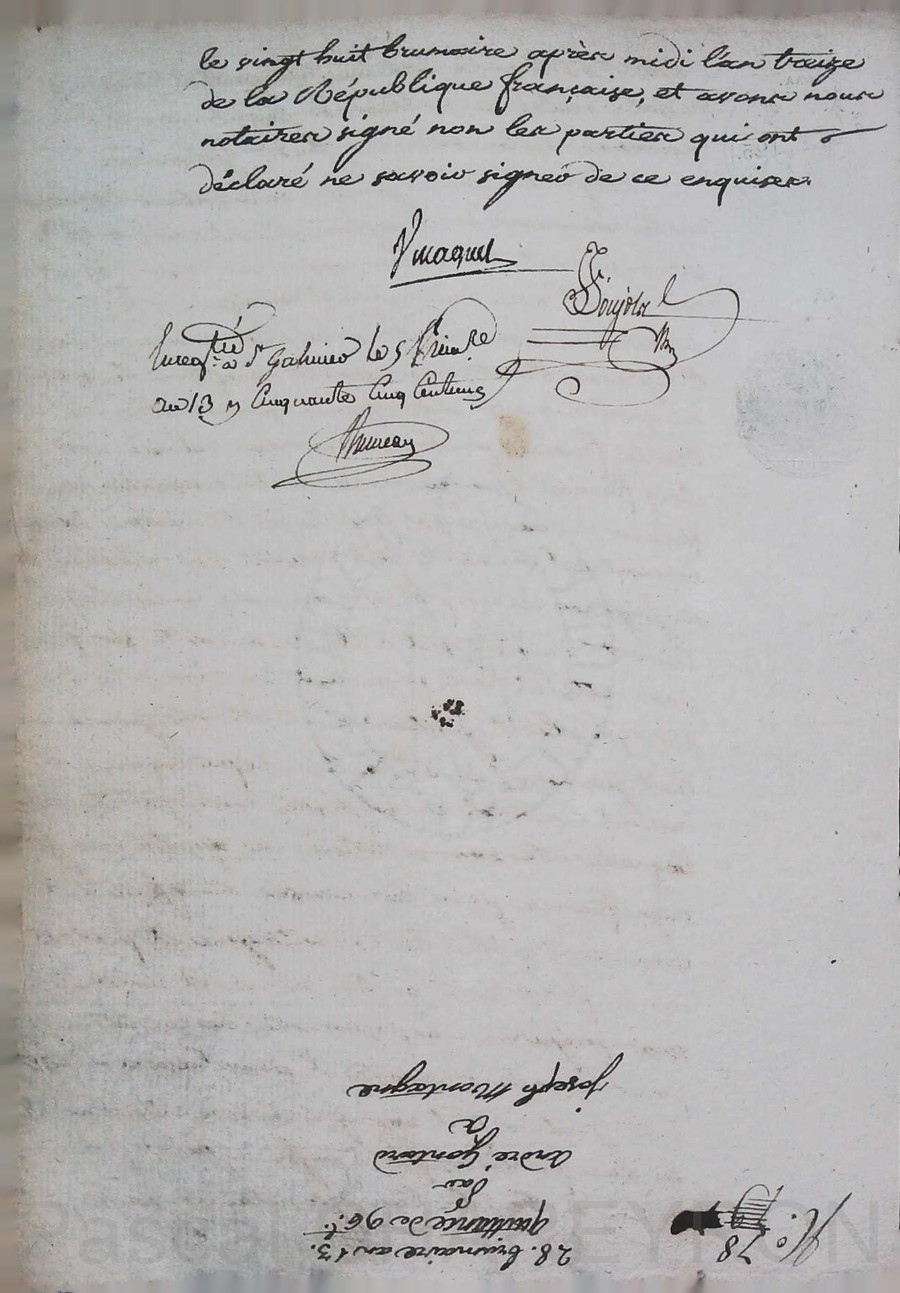 le vingt huit brumaire après midi l'an traize
de la République française, et avons nous
notaires signé non les parties qui ont
déclaré ne savoir signer de ce enquises.
Vmaquet
Enreg.tré à St Galmier le 5 frimre
an 13 Cinquante Cinq Centimes
N.o 78
28. brumaire an 13.
quittance de 96 l.t
Par
andré Gontard
a
joseph Montagne
PEYRON